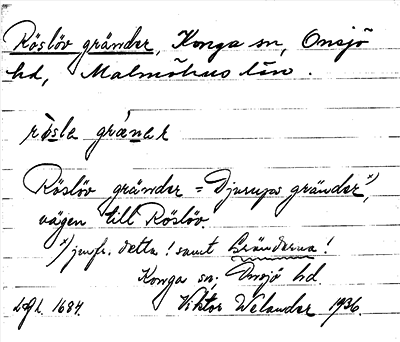 Röslöv gränder, Konga sn, Onsjö
hd, Malmöhus län.
rösla gränar
Röslöv gränder = Djurups gränder x),
vägen till Röslöv.
x) jmfr. detta! samt Gränderna!
Konga sn; Onsjö hd.
Lgl. 1684. Viktor Welander 1936.